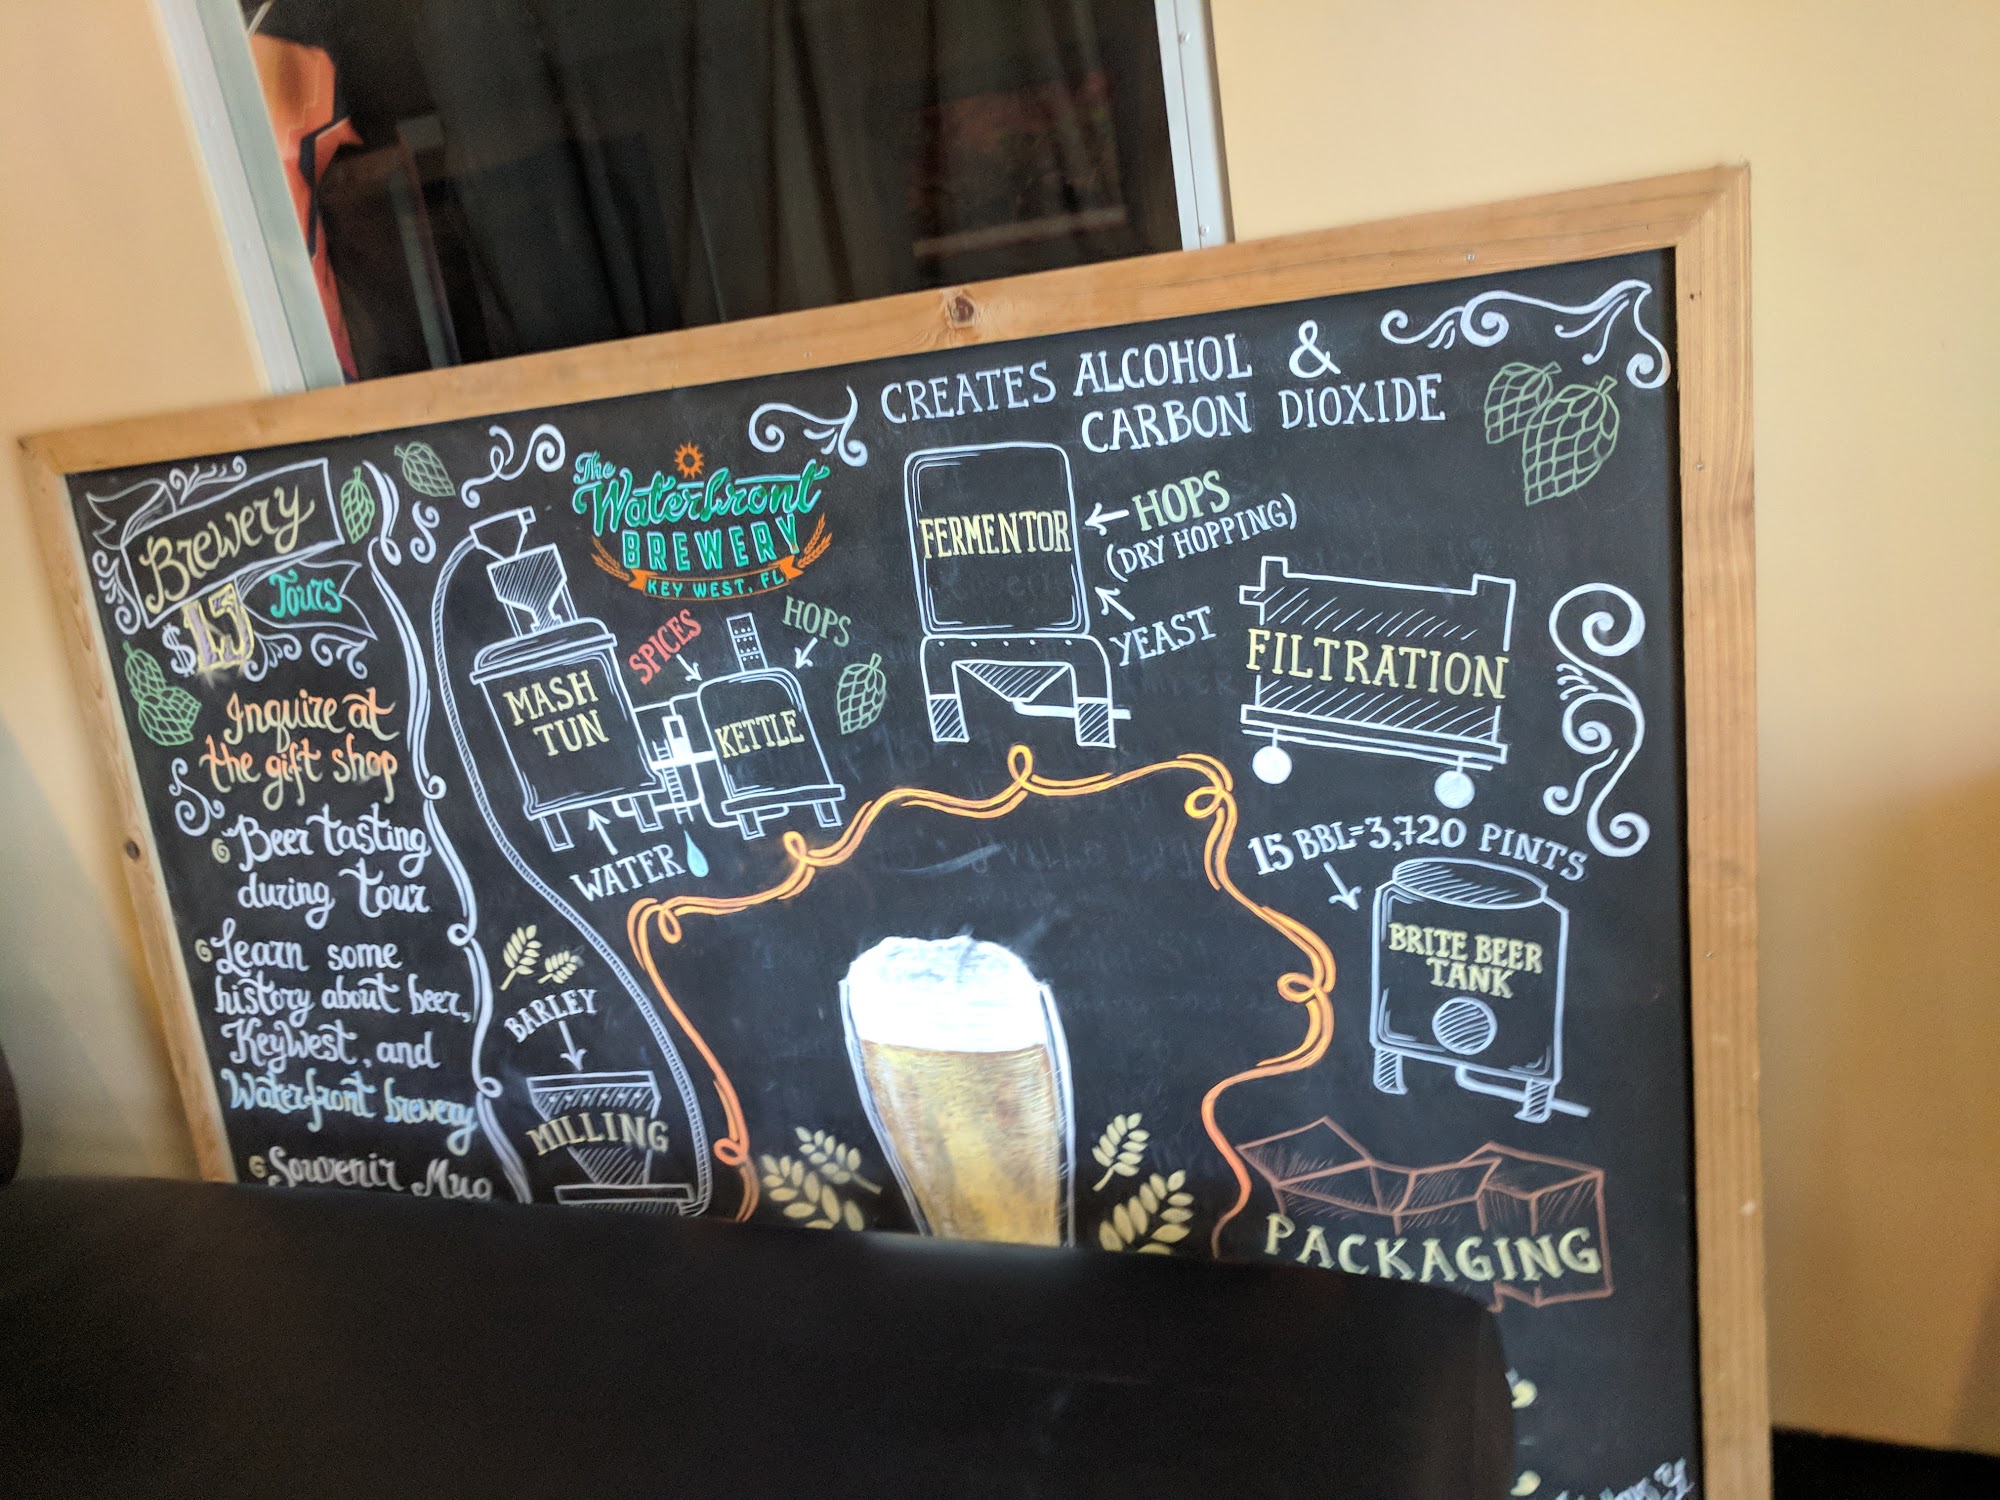 Brewery
Tours
$15
Inquire at
the gift shop
Beer tasting
during tour
Learn some
history about beer,
Key West, and
Waterfront brewery
Souvenir Mug
The
Waterfront
BREWERY
KEY WEST, FL
CREATES ALCOHOL &
CARBON DIOXIDE
BARLEY
MILLING
MASH
TUN
WATER
SPICES
HOPS
KETTLE
FERMENTOR
HOPS
(DRY HOPPING)
YEAST
FILTRATION
15 BBL=3,720 PINTS
BRITE BEER
TANK
PACKAGING